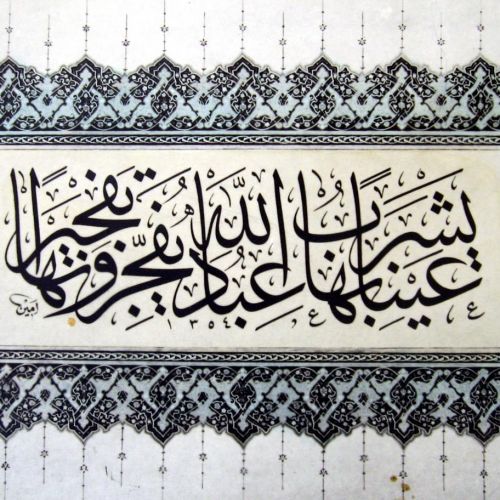 عينا يشرب بها عباد الله يفجرونها تفجيرا
١٣٥٤
امين